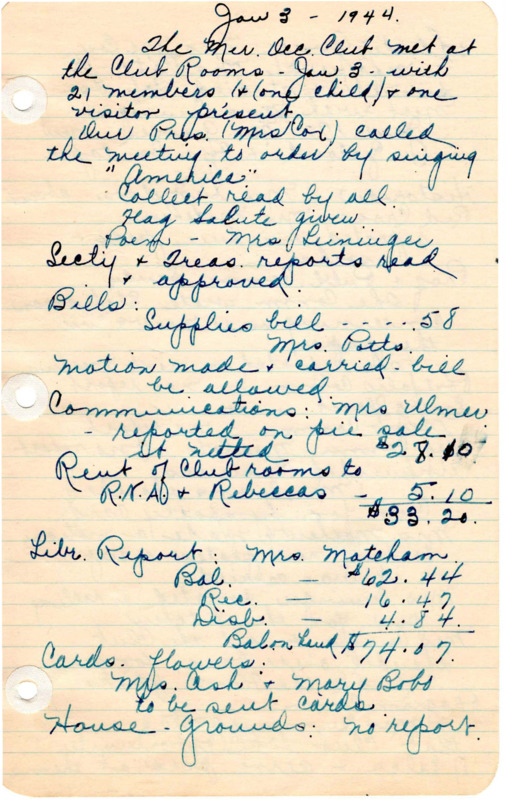 Jan 3 - 1944.
The Mer. Occ. Club met at
the Club Rooms - Jan 3 - with
21 members (& (one child) & one
visitor present.
Our Pres. (Mrs Cox) called
the meeting to order by singing
"America"
Collect read by all.
Flag Salute given
Poem - Mrs Leininger
Secty & Treas. reports read
& approved.
Bills:
Supplies bill - - - . . 58
Mrs. Potts.
Motion made & carried - bill
be allowed.
Communications: Mrs Ulmer
- reported on pie sale
It netted $28.10
Rent of Club rooms to
R.N.A. & Rebeccas - 5.10
$33.20.
Libr. Report: Mrs. Matcham
Bal. - $62.44
Rec. - 16.47
Disb. - 4.84
Bal on hand $74.07.
Cards. flowers:
Mrs. Ash & Mary Bobo
to be sent cards
House - Grounds: no report.